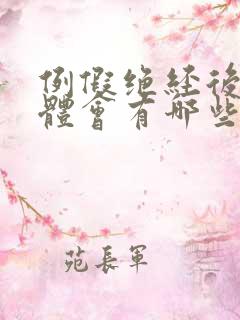 例假绝経後
體會有哪些
苑長軍